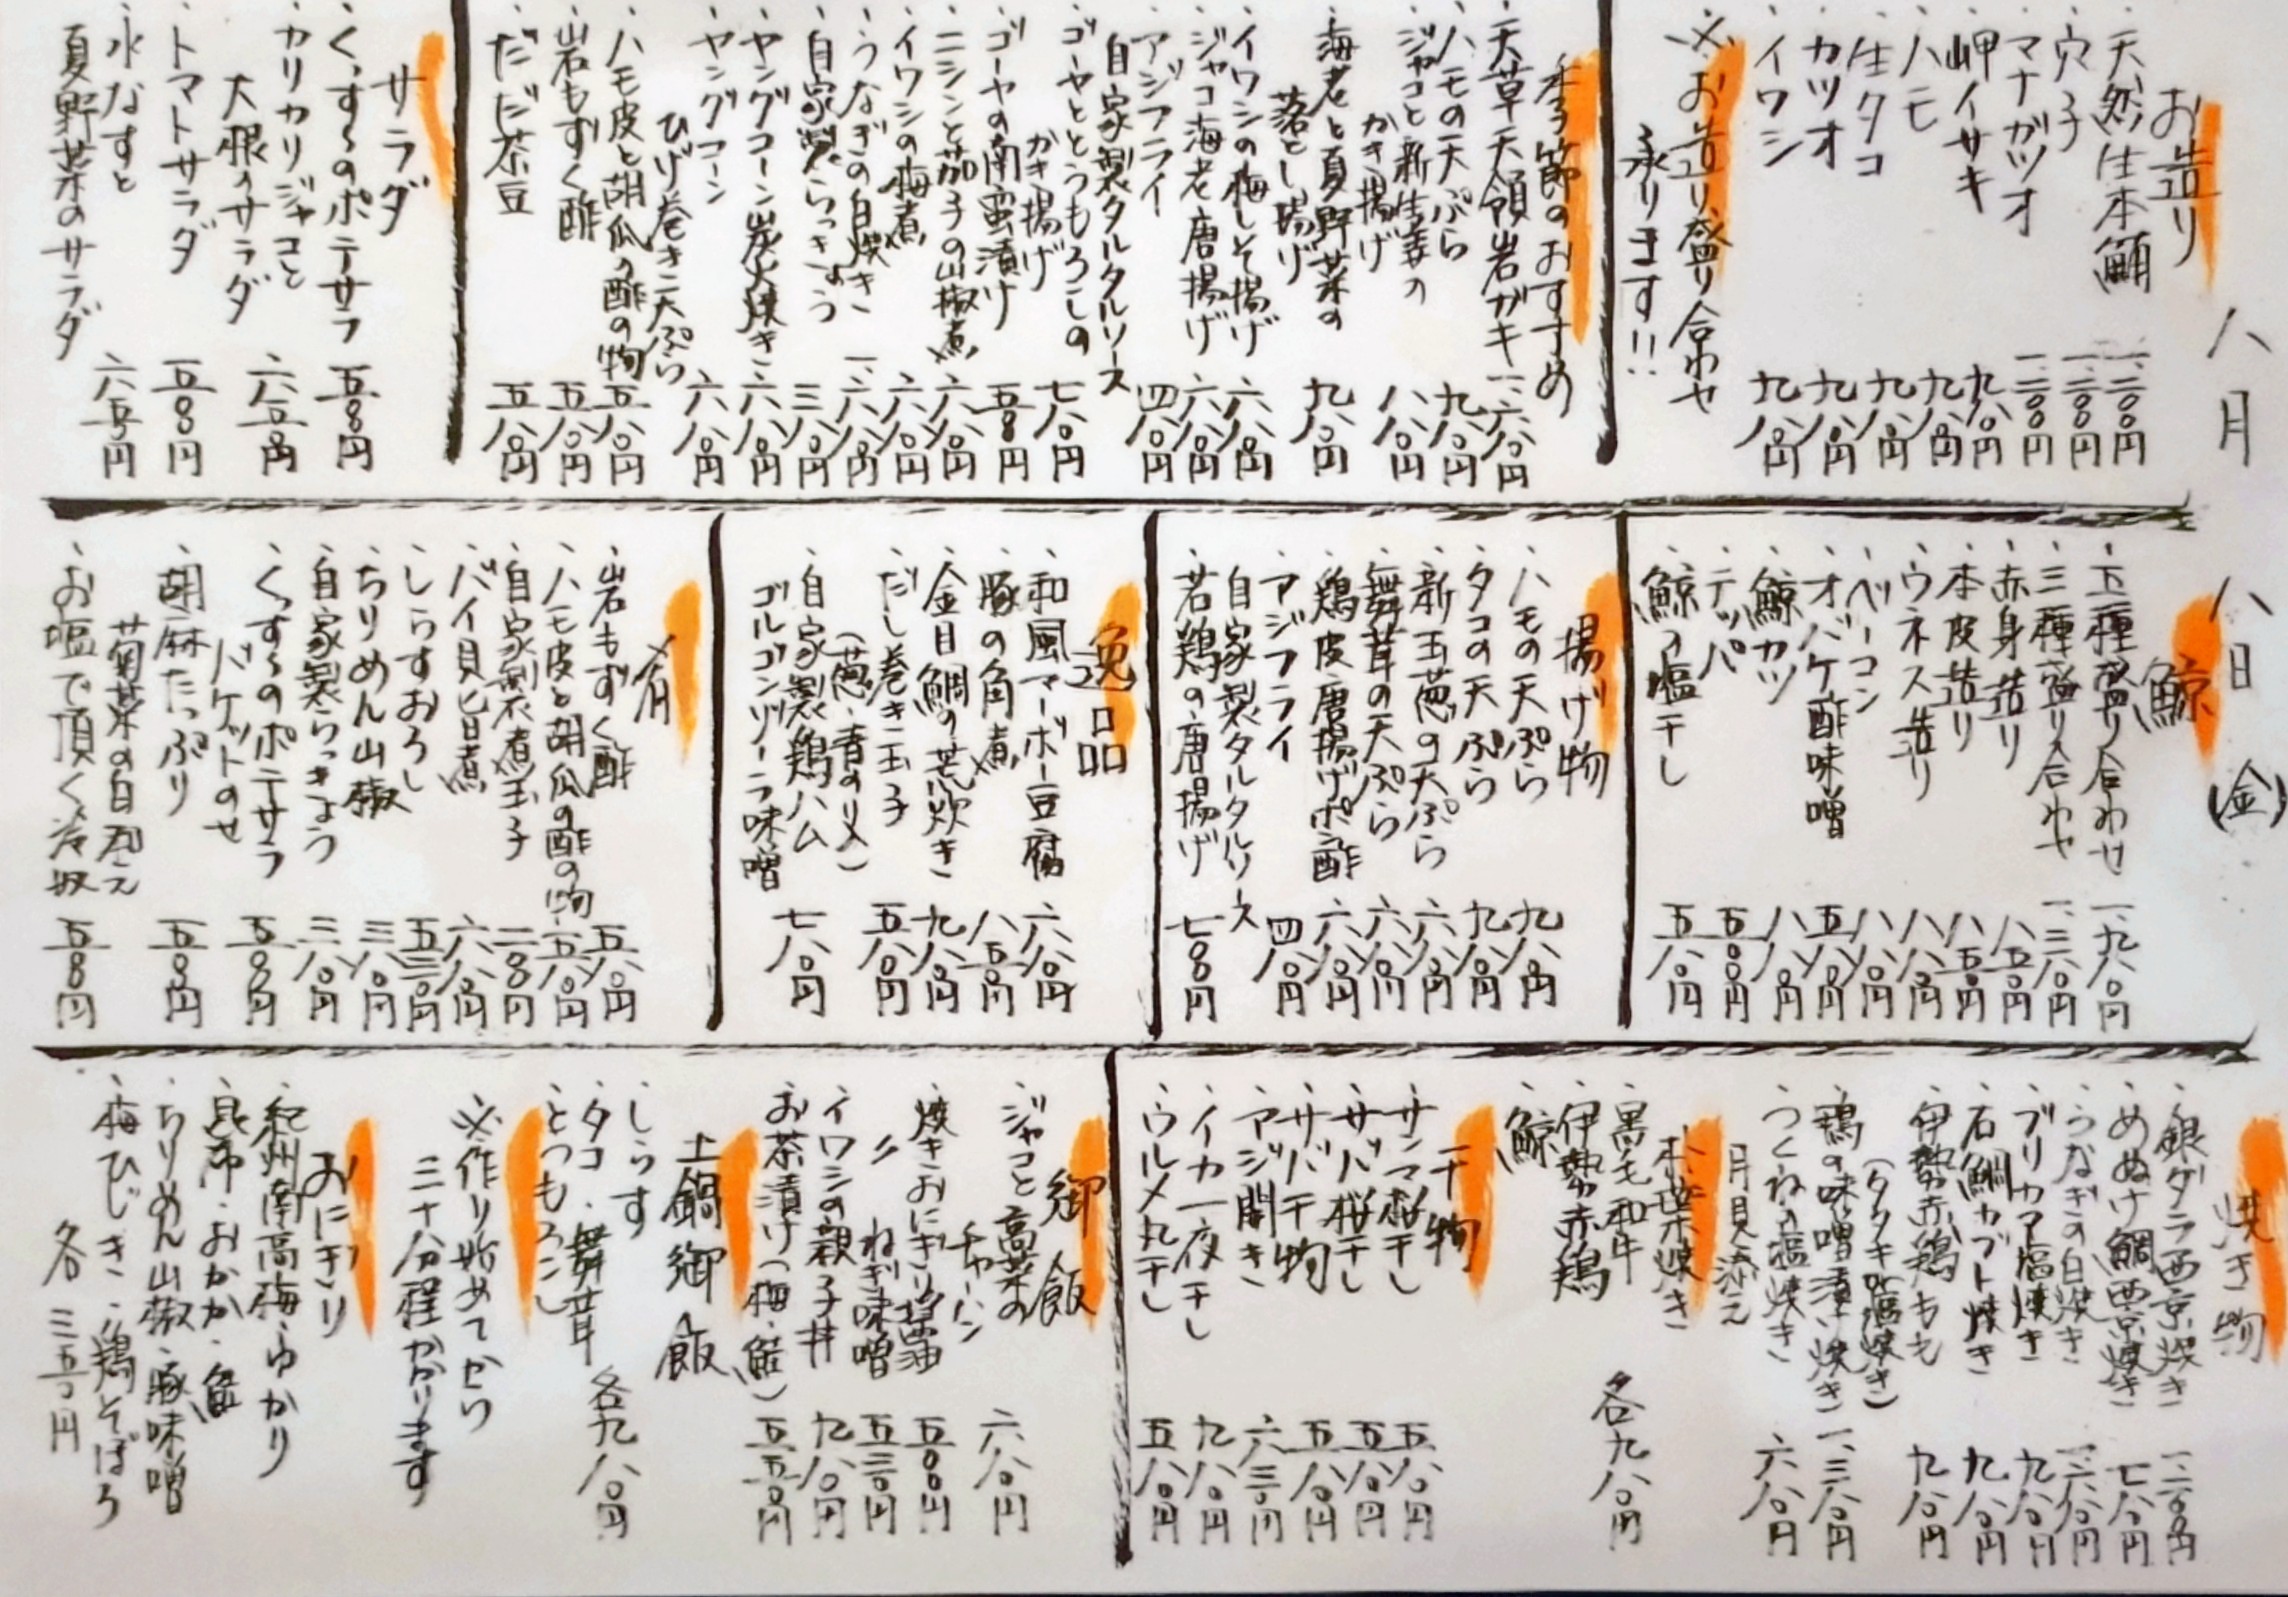 八月 八日 (金)
お造り
・天然生本鮪 一、二〇〇円
・穴子 一、二〇〇円
・マナガツオ 一、二〇〇円
・岬イサキ 九八〇円
・ハモ 九八〇円
・生タコ 九八〇円
・カツオ 九八〇円
・イワシ 九八〇円
※お造り盛り合わせ
承ります!!
季節のおすすめ
・天草天領岩ガキ 一、六八〇円
・ハモの天ぷら 九八〇円
・ジャコと新生姜の
かき揚げ 八八〇円
・海老と夏野菜の
落とし揚げ 九八〇円
・イワシの梅しそ揚げ 六八〇円
・ジャコ海老唐揚げ 六八〇円
・アジフライ 四八〇円
自家製タルタルソース
・ゴーヤととうもろこしの
かき揚げ 七八〇円
・ゴーヤの南蛮漬け 五八〇円
・ニシンと茄子の山椒煮 六八〇円
・イワシの梅煮 六八〇円
・うなぎの白焼き 一、六八〇円
・自家製らっきょう 三八〇円
・ヤングコーン炭火焼き 六八〇円
・ヤングコーン
ひげ巻き天ぷら 六八〇円
・ハモ皮と胡瓜の酢の物 五八〇円
・岩もずく酢 五八〇円
・だだ茶豆 五八〇円
サラダ
・くっすーのポテサラ 五〇〇円
・カリカリジャコと
大根のサラダ 六五〇円
・トマトサラダ 五〇〇円
・水なすと
夏野菜のサラダ 六五〇円
鯨
・五種盛り合わせ 一、九八〇円
・三種盛り合わせ 一、三八〇円
・赤身造り 八五〇円
・本皮造り 八五〇円
・ウネス造り 八八〇円
・ベーコン 八八〇円
・オバケ酢味噌 五八〇円
・鯨カツ 八八〇円
・テッパ 五〇〇円
・鯨の塩干し 五八〇円
揚げ物
・ハモの天ぷら 九八〇円
・タコの天ぷら 九八〇円
・新玉葱の天ぷら 六八〇円
・舞茸の天ぷら 六八〇円
・鶏皮唐揚げポン酢 六八〇円
・アジフライ 四八〇円
自家製タルタルソース
・若鶏の唐揚げ 七〇〇円
逸品
・和風マーボー豆腐 六八〇円
・豚の角煮 八五〇円
・金目鯛の荒炊き 九八〇円
・だし巻き玉子 五八〇円
(葱・青のり)
・自家製鶏ハム
ゴルゴンゾーラ味噌 七八〇円
肴
・岩もずく酢 五八〇円
・ハモ皮と胡瓜の酢の物 五八〇円
・自家製煮玉子 二〇〇円
・バイ貝旨煮 六八〇円
・しらすおろし 五三〇円
・ちりめん山椒 三八〇円
・自家製らっきょう 三八〇円
・くっすーのポテサラ
バケットのせ 五〇〇円
・胡麻たっぷり
菊菜の白和え 五〇〇円
・お塩で頂く冷奴 五〇〇円
焼き物
・銀ダラ西京焼き 一、二〇〇円
・めぬけ鯛西京焼き 七八〇円
・うなぎの白焼き 一、六八〇円
・ブリカマ塩焼き 九八〇円
・石鯛カブト焼き 九八〇円
・伊勢赤鶏もも 九八〇円
(タタキ・塩焼き)
・鶏の味噌漬け焼き 一、三八〇円
・つくねの塩焼き 六八〇円
月見添え
朴葉焼き
・黒毛和牛
・伊勢赤鶏
・鯨
各九八〇円
干物
・サンマ桜干し 五八〇円
・サバ桜干し 五八〇円
・サバ干物 五八〇円
・アジ開き 六三〇円
・イカ一夜干し 九八〇円
・ウルメ丸干し 五八〇円
御飯
・ジャコと高菜の
チャーハン 六八〇円
・焼きおにぎり醤油 五〇〇円
・〃 ねぎ味噌 五三〇円
・イワシの親子丼 九八〇円
・お茶漬け(梅・鮭) 五五〇円
土鍋御飯
・しらす
・タコ・舞茸
・とうもろこし
各九八〇円
※作り始めてから
三十分程かかります
おにぎり
・紀州南高梅・ゆかり
・昆布・おかか・鮭
・ちりめん山椒・豚味噌
・梅ひじき・鶏そぼろ
各三五〇円